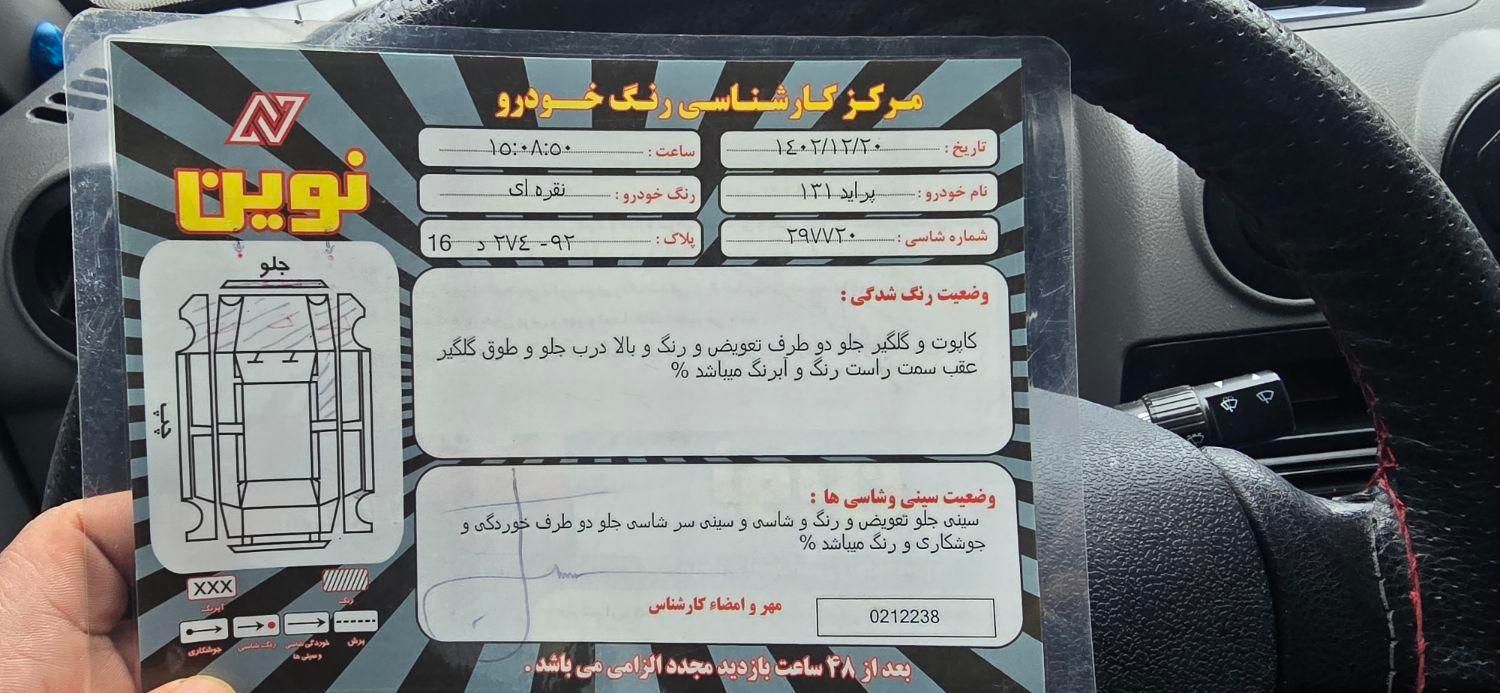 مرکز کارشناسی رنگ خودرو
N
نوین
تاریخ : ۱٤۰۲/۱۲/۲۰
ساعت : ۱٥:۰۸:٥۰
نام خودرو : پراید ۱۳۱
رنگ خودرو : نقره ای
شماره شاسی : ۲۹۷۷۲۰
پلاک : ۹۲- ۲۷٤ د 16
جلو
چپ
وضعیت رنگ شدگی :
کاپوت و گلگیر جلو دو طرف تعویض و رنگ و بالا درب جلو و طوق گلگیر
عقب سمت راست رنگ و آبرنگ میباشد %
وضعیت سینی وشاسی ها :
سینی جلو تعویض و رنگ و شاسی و سینی سر شاسی جلو دو طرف خوردگی و
جوشکاری و رنگ میباشد %
مهر و امضاء کارشناس
0212238
XXX
آبرنگ
رنگ
جوشکاری
رنگ شاسی
خوردگی شاسی
و سینی ها
برش
بعد از ۴۸ ساعت بازدید مجدد الزامی می باشد .